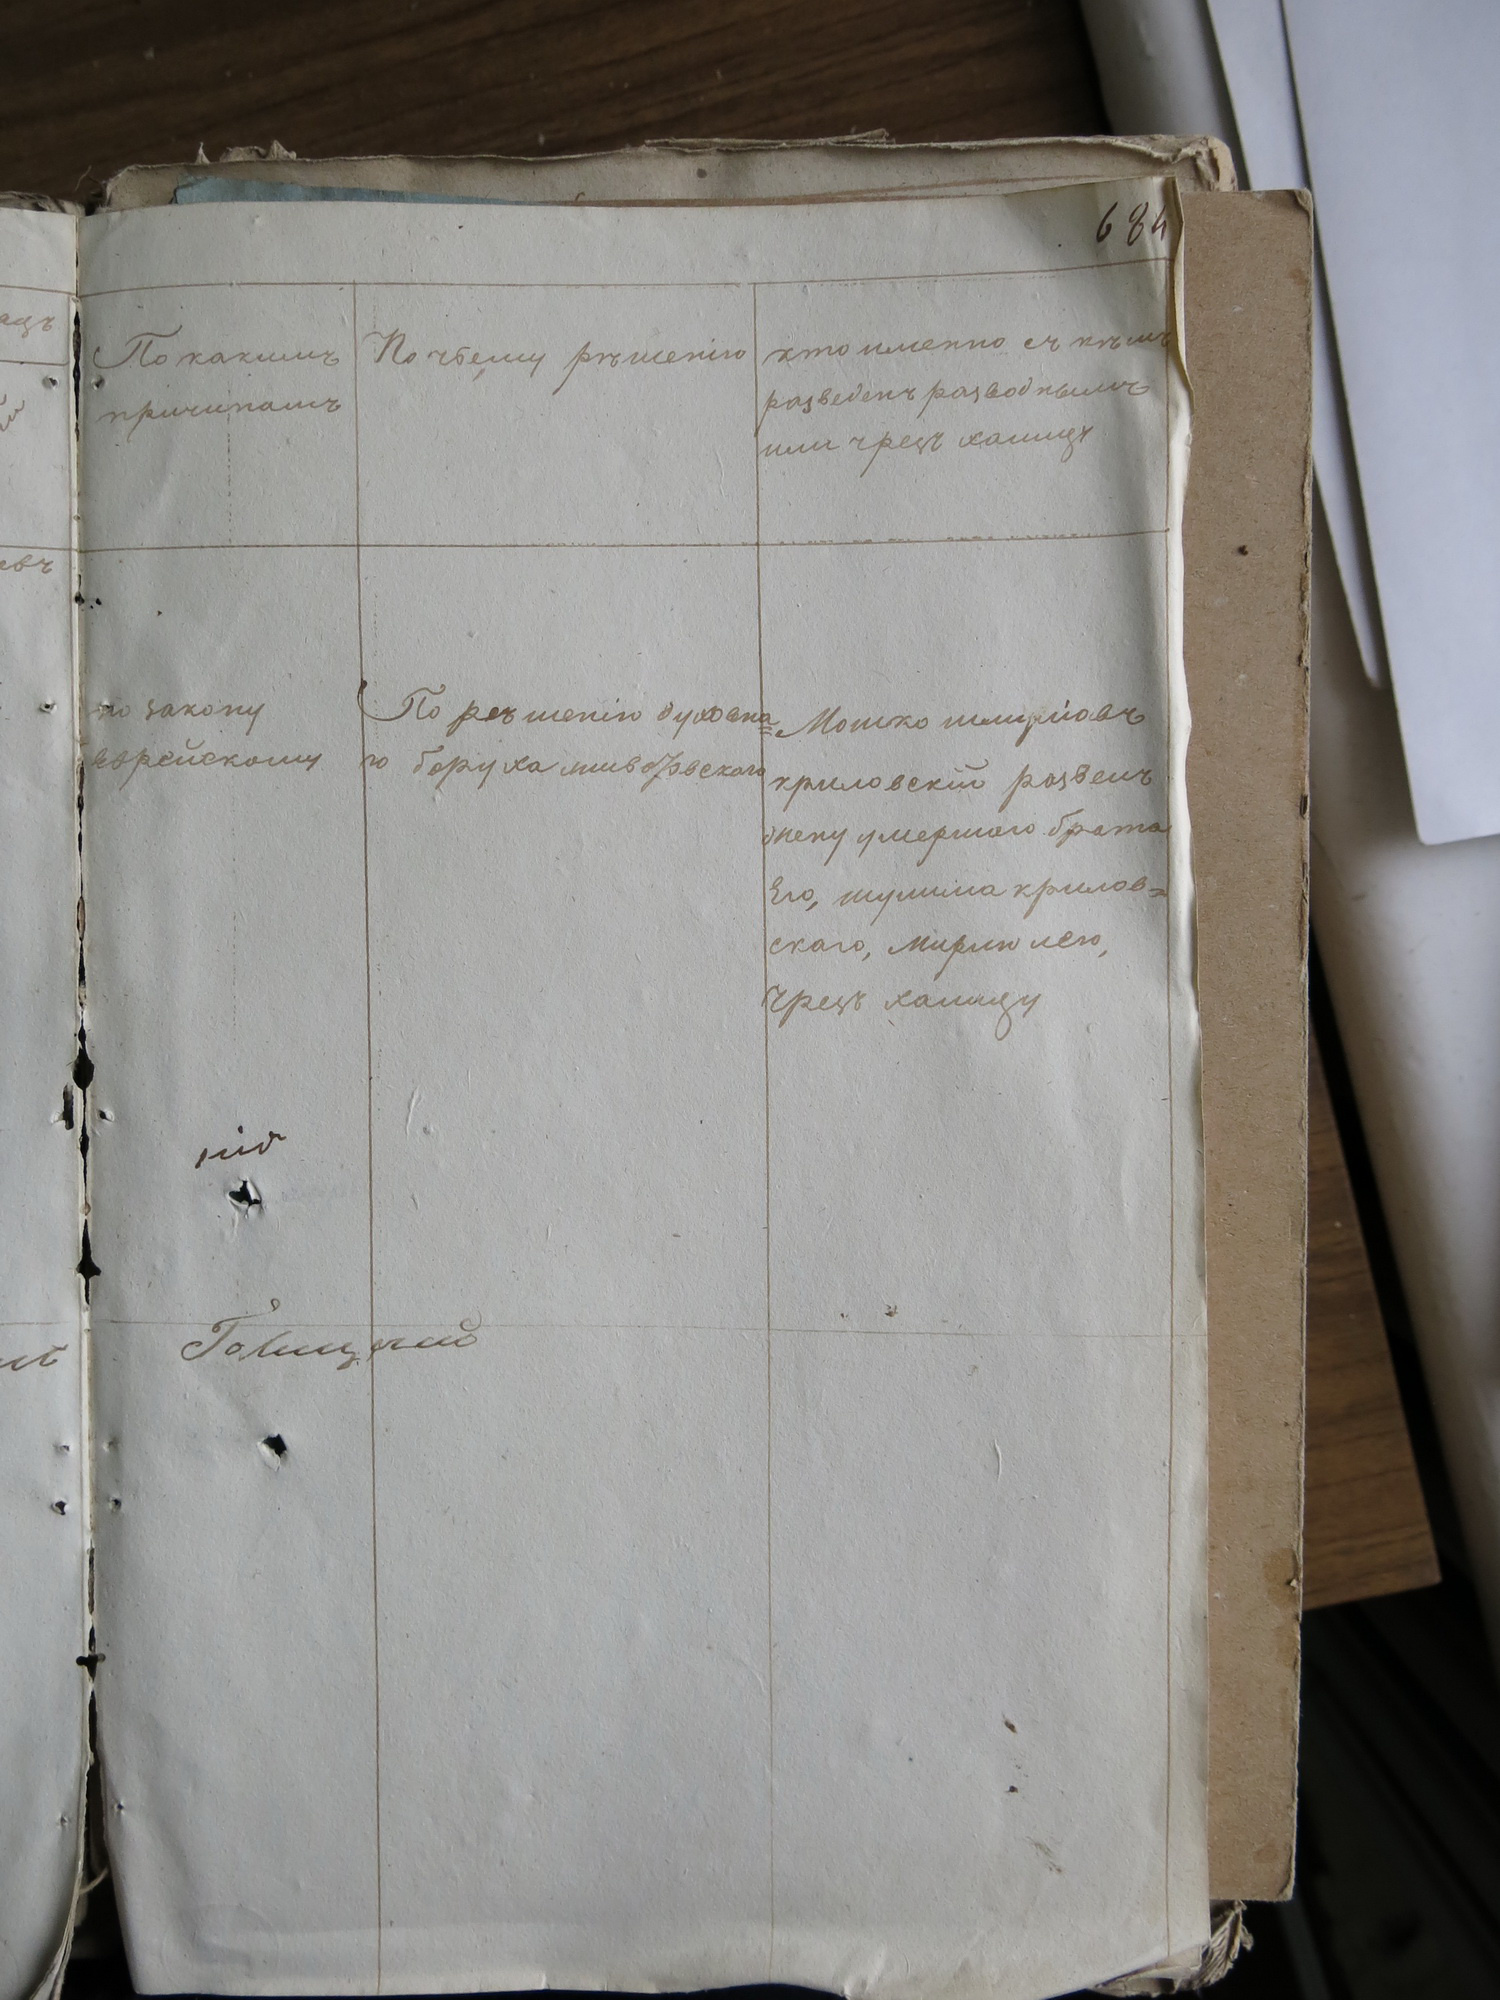 684
По какимъ
причинамъ
По чьему рѣшенію
кто именно съ кѣмъ
разведенъ разводнымъ
или чрезъ халицу
по закону
еврейскому
По рѣшенію духовна=
го боруха
Мошко
криловскій развелъ
жену умершаго брата
Его, шулима крилов=
скаго, Мирлю лею,
Чрезъ халицу
Голицкий